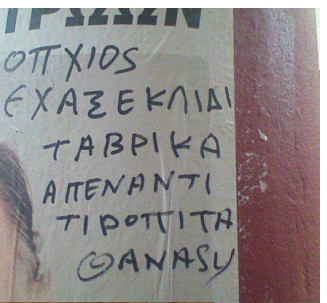 ΤΡΩΩΝ
ΟΠΧΙΟS
ΕΧΑΣΕΚΛΙΔΙ
ΤΑΒΡΙΚΑ
ΑΠΕΝΑΝΤΙ
ΤΙΡΟΠΙΤΑ
ΘΑΝΑSΥ